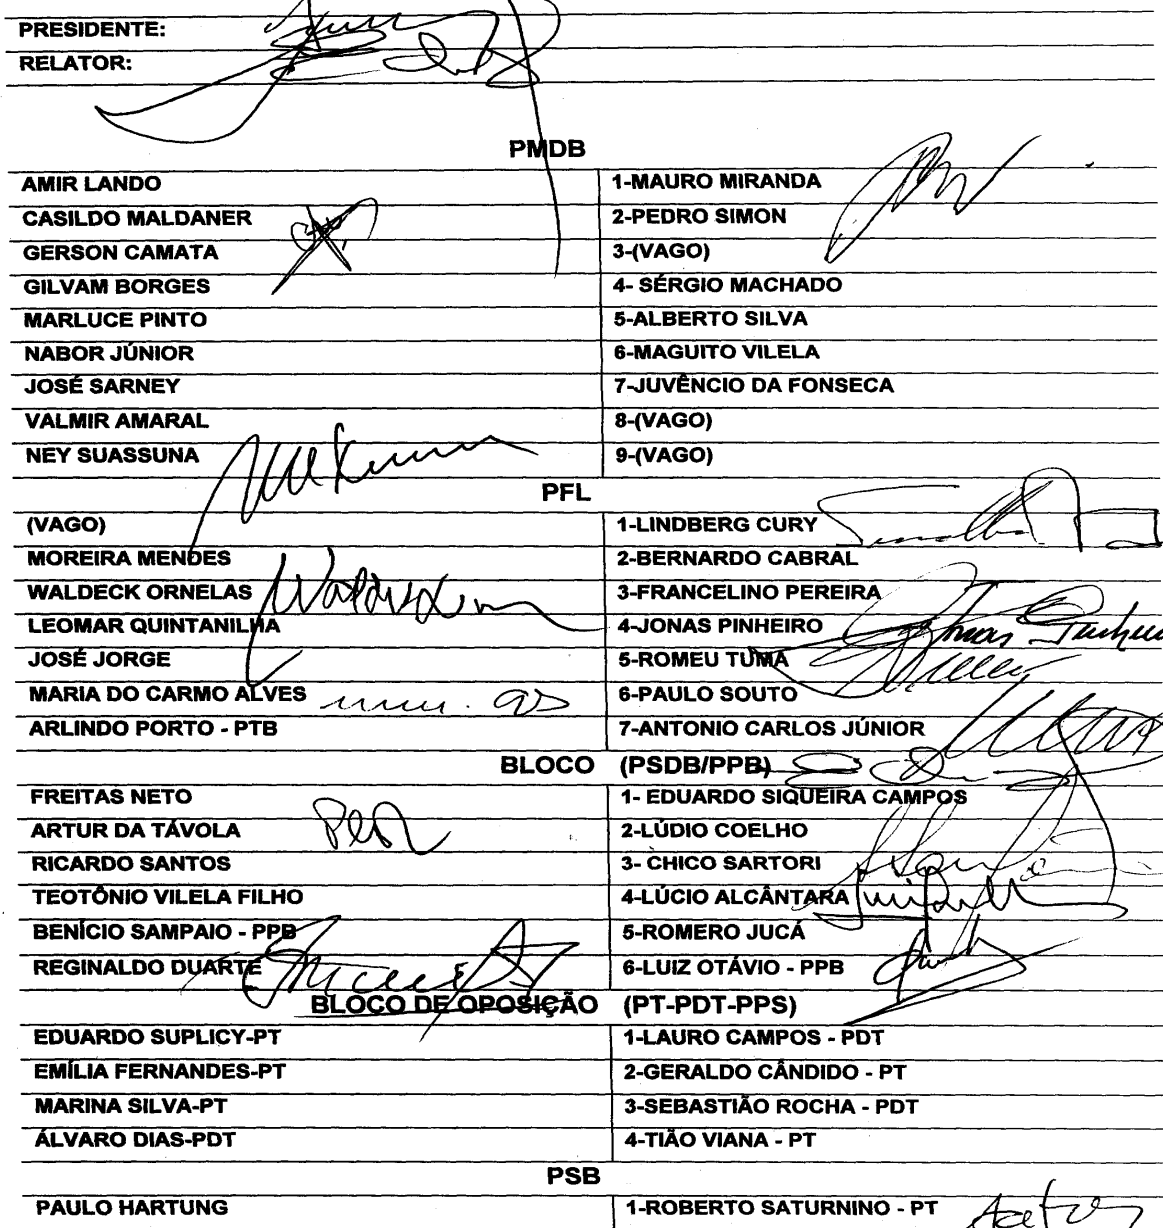 PRESIDENTE:
RELATOR:
PMDB
AMIR LANDO 1-MAURO MIRANDA
CASILDO MALDANER 2-PEDRO SIMON
GERSON CAMATA 3-(VAGO)
GILVAM BORGES 4- SÉRGIO MACHADO
MARLUCE PINTO 5-ALBERTO SILVA
NABOR JÚNIOR 6-MAGUITO VILELA
JOSÉ SARNEY 7-JUVÊNCIO DA FONSECA
VALMIR AMARAL 8-(VAGO)
NEY SUASSUNA 9-(VAGO)
PFL
(VAGO) 1-LINDBERG CURY
MOREIRA MENDES 2-BERNARDO CABRAL
WALDECK ORNELAS 3-FRANCELINO PEREIRA
LEOMAR QUINTANILHA 4-JONAS PINHEIRO
JOSÉ JORGE 5-ROMEU TUMA
MARIA DO CARMO ALVES 6-PAULO SOUTO
ARLINDO PORTO - PTB 7-ANTONIO CARLOS JÚNIOR
BLOCO (PSDB/PPB)
FREITAS NETO 1- EDUARDO SIQUEIRA CAMPOS
ARTUR DA TÁVOLA 2-LÚDIO COELHO
RICARDO SANTOS 3- CHICO SARTORI
TEOTÔNIO VILELA FILHO 4-LÚCIO ALCÂNTARA
BENÍCIO SAMPAIO - PPB 5-ROMERO JUCÁ
REGINALDO DUARTE 6-LUIZ OTÁVIO - PPB
BLOCO DE OPOSIÇÃO (PT-PDT-PPS)
EDUARDO SUPLICY-PT 1-LAURO CAMPOS - PDT
EMÍLIA FERNANDES-PT 2-GERALDO CÂNDIDO - PT
MARINA SILVA-PT 3-SEBASTIÃO ROCHA - PDT
ÁLVARO DIAS-PDT 4-TIÃO VIANA - PT
PSB
PAULO HARTUNG 1-ROBERTO SATURNINO - PT